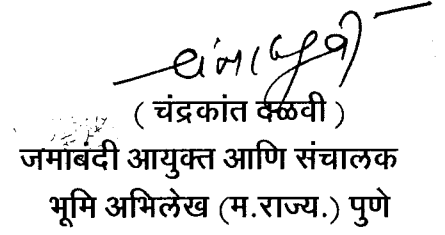 ( चंद्रकांत दळवी )
जमाबंदी आयुक्त आणि संचालक
भूमि अभिलेख (म.राज्य.) पुणे